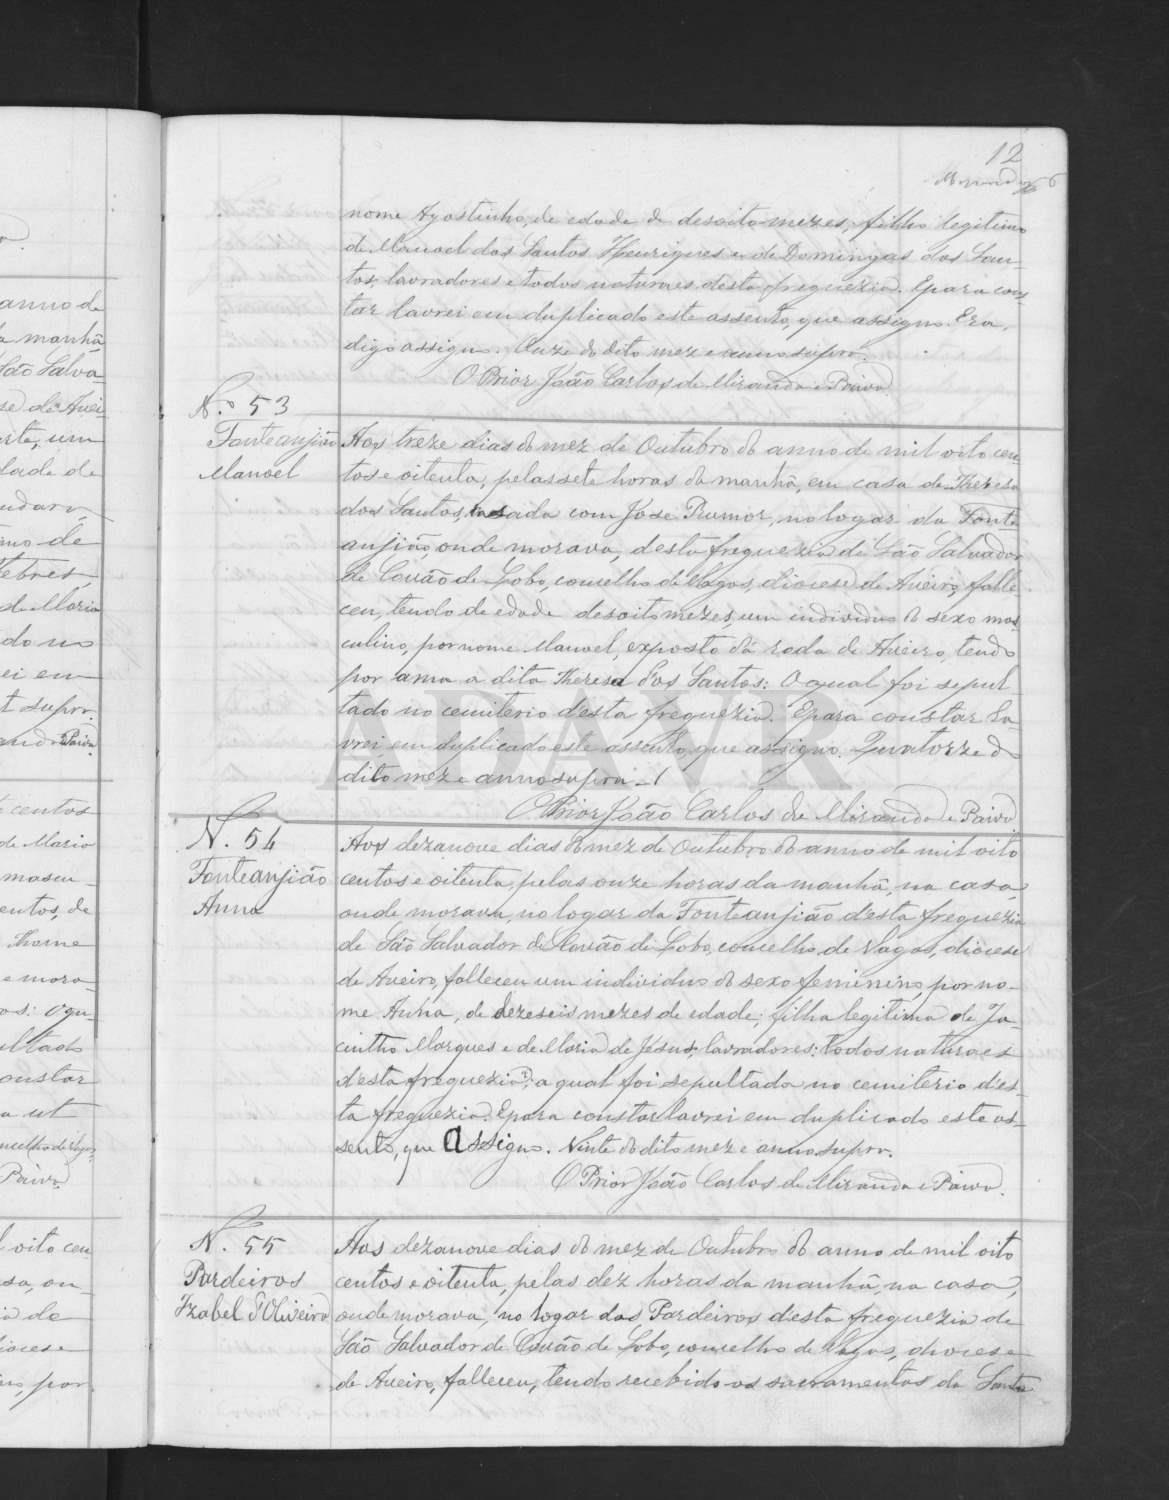 12
nome Agostinho, de edade de desoito mezes, filho legitimo
de Manoel dos Santos Henriques e de Domingas dos San-
tos, lavradores e todos naturaes desta freguezia. E para cons
tar lavrei em duplicado este assento, que assigno. Era,
digo assigno. Onze do dito mez e anno supra.
O Prior João Carlos de Miranda e Paiva.
N.º 53
Fonteanjião
Manoel
Aos treze dias do mez de Outubro do anno de mil oito cen-
tos e oitenta, pelas sete horas da manhã, em casa de Thereza
dos Santos, casada com José Rumor, no logar da Fonte
anjião, onde morava, desta freguezia de São Salvador
de Covão de Lobo, concelho de Vagos, diocese de Aveiro, falle
ceu, tendo de edade desoito mezes, um individuo do sexo mas
culino, por nome Manoel, exposto da roda de Aveiro, tendo
por ama a dita Thereza dos Santos: O qual foi sepul-
tado no cemiterio d'esta freguezia. E para constar la-
vrei em duplicado este assento, que assigno. Quatorze do
dito mez e anno supra.
O Prior João Carlos de Miranda e Paiva
N. 54
Fonteanjião
Anna
Aos dezanove dias do mez de Outubro do anno de mil oito
centos e oitenta, pelas onze horas da manhã, na casa,
onde morava, no logar da Fonteanjião d'esta freguezia
de São Salvador de Covão de Lobo, concelho de Vagos, diocese
de Aveiro, falleceu um individuo do sexo feminino, por no-
me Anna, de dezeseis mezes de edade; filha legitima de Ja-
cintho Marques e de Maria de Jesus; lavradores: todos naturaes
d'esta freguezia; a qual foi sepultada no cemiterio d'es-
ta freguezia. E para constar lavrei em duplicado este as-
sento, que Assigno. Vinte do dito mez e anno supra.
O Prior João Carlos de Miranda e Paiva.
N. 55
Pardeiros
Izabel d'Oliveira
Aos dezanove dias do mez de Outubro do anno de mil oito
centos e oitenta, pelas dez horas da manhã, na casa,
onde morava, no logar dos Pardeiros d'esta freguezia de
São Salvador de Covão de Lobo, concelho de Vagos, diocese
de Aveiro, falleceu, tendo recebido os sacramentos da Santa
ADAVR